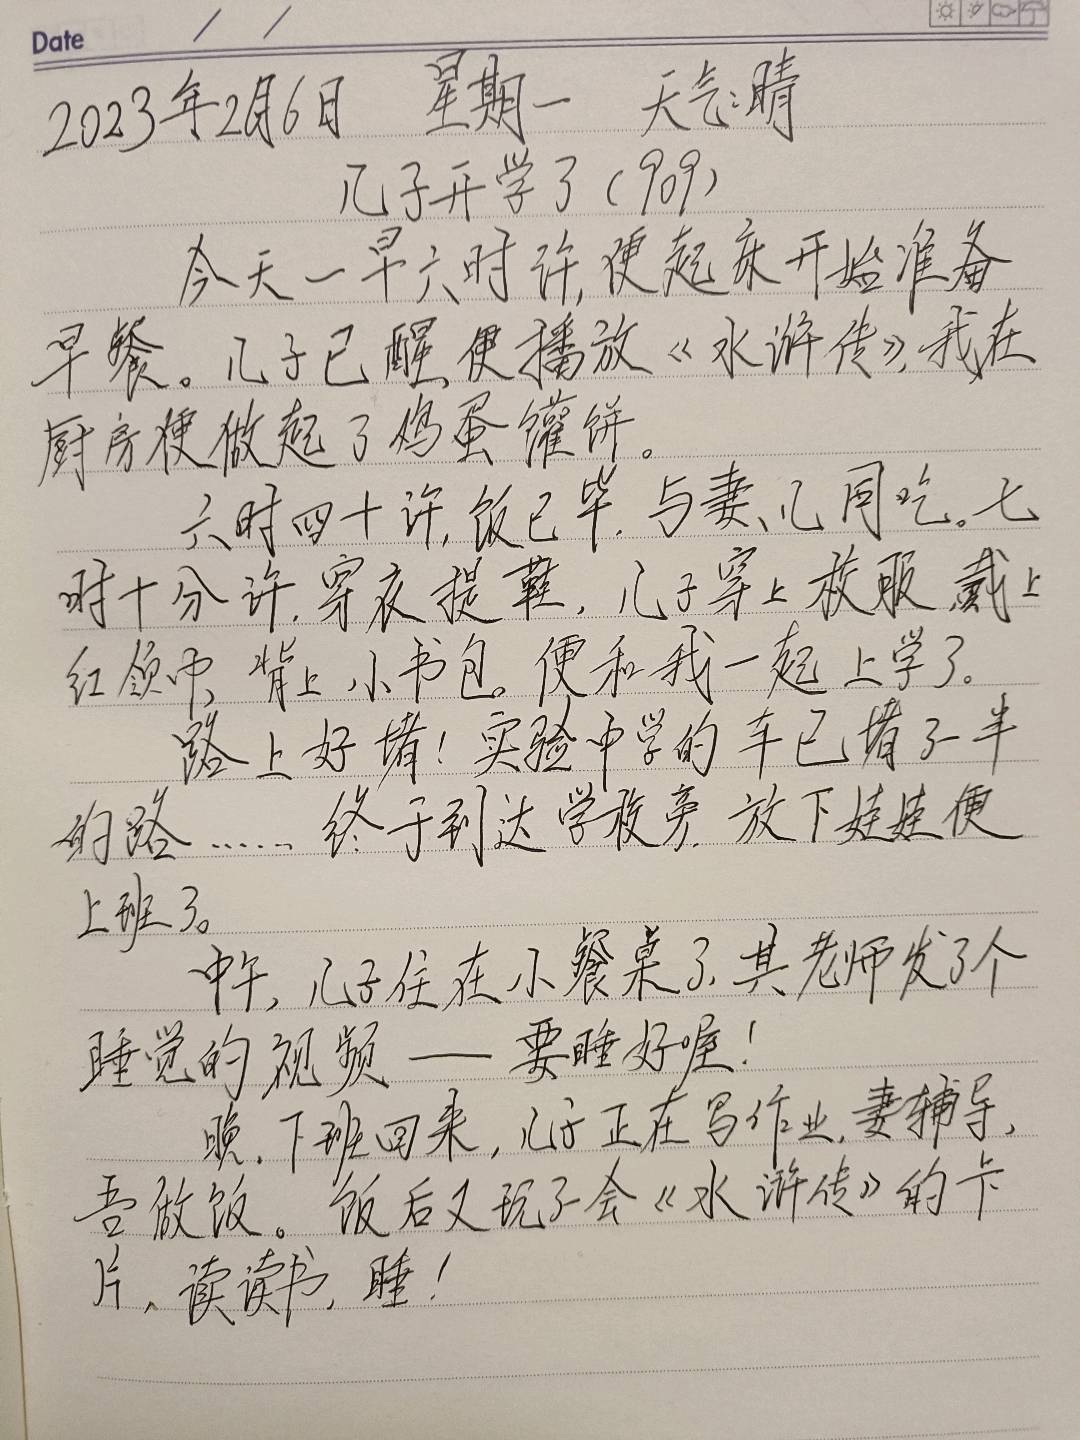 Date / /
2023年2月6日 星期一 天气:晴
儿子开学了(909)
今天一早六时许,便起床开始准备
早餐。儿子已醒,便播放《水浒传》,我在
厨房便做起了鸡蛋馑饼。
六时四十许,饭已毕,与妻、儿同吃。七
时十分许,穿衣提鞋,儿子穿上校服,戴上
红领巾,背上小书包。便和我一起上学了。
路上好堵!实验中学的车已堵了一半
的路……终于到达学校旁,放下娃娃便
上班了。
中午,儿子住在小餐桌了,其老师发了个
睡觉的视频——要睡好喔!
晚,下班回来,儿子正在写作业,妻辅导,
吾做饭。饭后又玩了会《水浒传》的卡
片,读读书,睡!